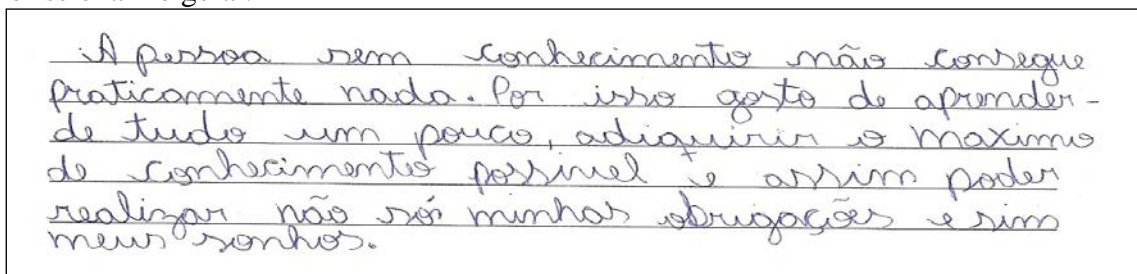 A pessoa sem conhecimento não consegue
praticamente nada. Por isso gosto de aprender -
de tudo um pouco, adiquirir o maximo
de conhecimento possivel e assim poder
realizar não só minhas obrigações e sim
meus sonhos.